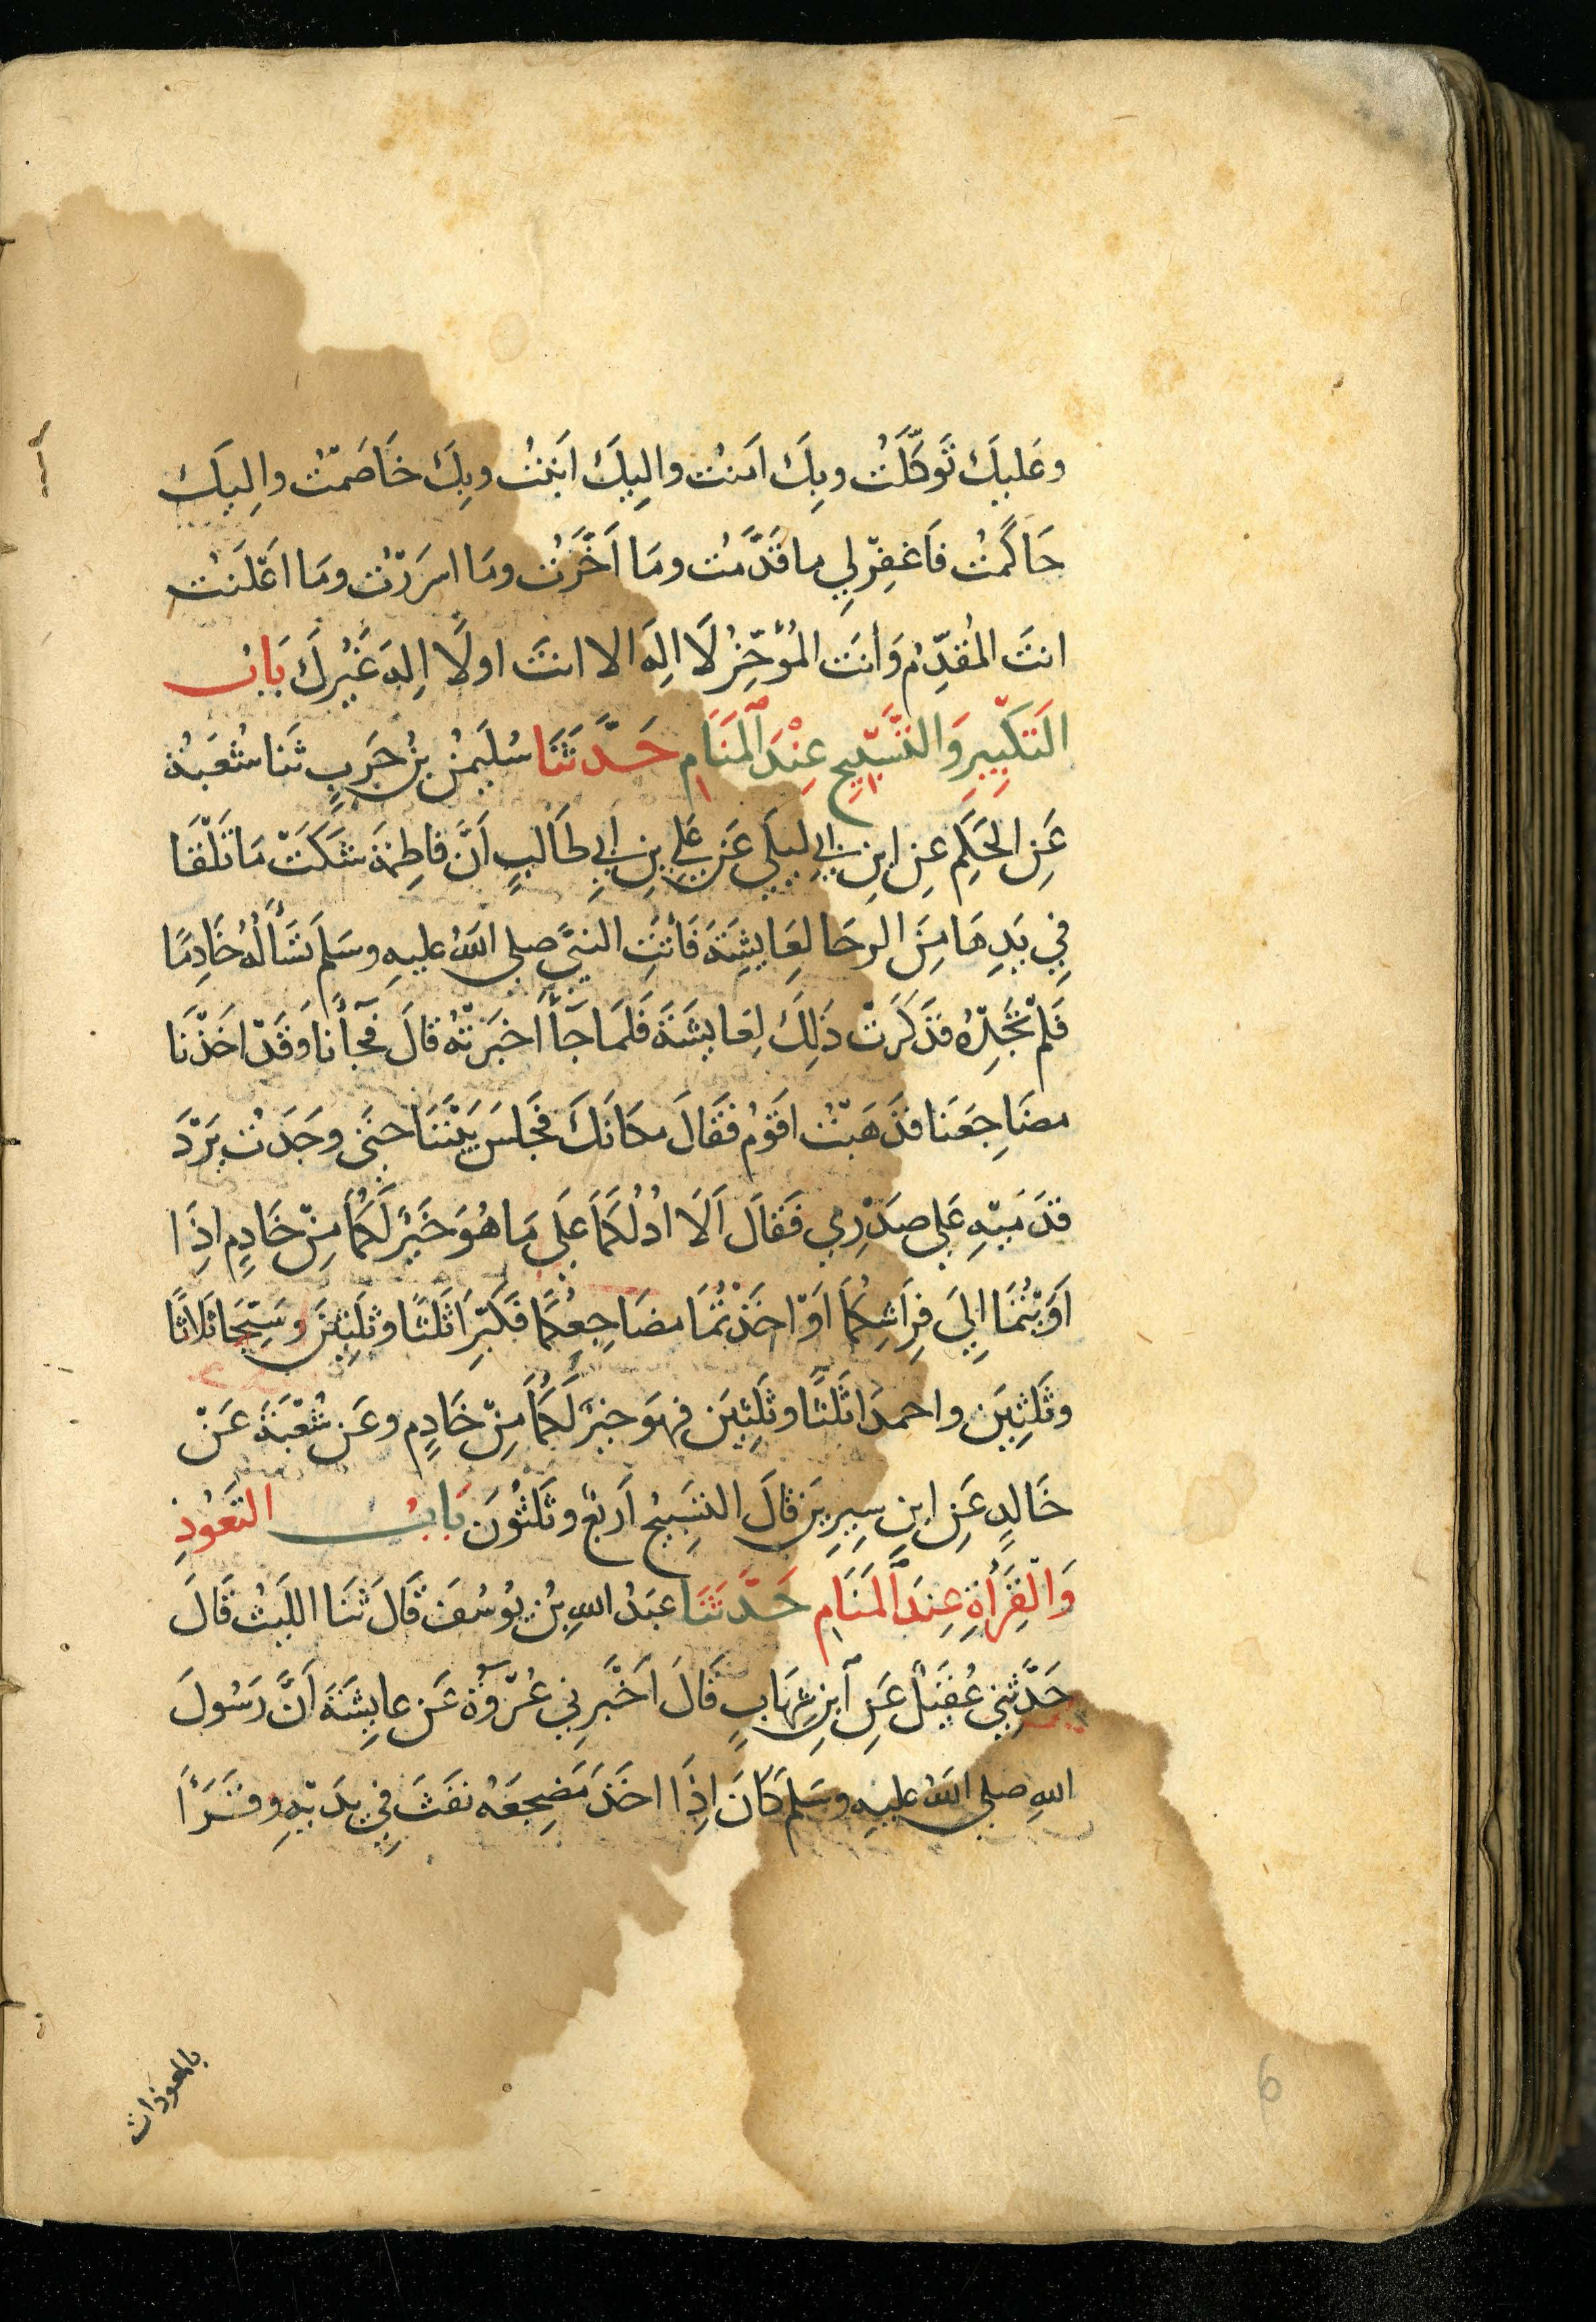 وعَليكَ تَوكَّلَتُ وبِكَ امَنتُ واليِكَ ابَنتُ وبِكَ خَاصَمتُ واِليكَ
حَاكَمتُ فَاغفِرْلِي ماقَدَّمتُ ومَا اَخَّرَتُ ومَا اسرَرْتُ ومَا اعْلَنتُ
انتَ المُقدِّم وَأنتَ المُؤَخِّرُ لَا الهَ الا انتَ اولَا اِلهَ غَيُركَ بَابُ
التَكبِيرِ وَالتَّسْبِيحِ عِنْدَ ٱلمَنَامِ حَدَّثَنَا سُليَمنُ بنُ حَربٍ ثَنا شُعبَةُ
عَنِ الحَكَمِ عِنِ ابنِ ابي ليَلَي عَن عَلِي بنِ اَبِي طَالبٍ اَنَّ فَاطِمَةَ شَكَتْ مَا تَلْقَا
فِي يَدِهَا مِنَ الرحَا لِعَايشِةَ فَاتَتِ النبيَّ صلي اللهُ عليهِ وسَلم تَسْأَلُهُ خَادِمًا
فَلمْ تَجِدْهُ فذَكَرَتْ ذلِكَ لِعَايشَةَ فَلمَا جَآأَ اَخبَرَتْهُ قالَ فَجَآأَنا وَقَدْ اخَذْنَا
مضَاجِعَنَا فذَهَبْتُ اقَوُم فقَالَ مكَانَكَ فَجَلسَ بَيْنَنَا حتَي وجَدتُ بَرْدَ
قدَمَيْهِ عَلي صَدْرِي فَقالَ اَلَا ادُلُكمَا عَلَي مَا هُوَ خَيْرٌ لَكُمَا مِنْ خَادِمٍ اِذَا
اوَيْتُمَا اِليَ فِرَاشِكُمَا اوَ اخَذْتُمَا مضَاجِعِكُمَا فَكبِّرَا ثَلثًا وثَلثِينَ وسَبِّحَا ثلَاثًا
وثَلثِينَ واحمدَا ثَلثًا وثَلثِينَ فهوَ خيرٌ لَكُمَا مِنْ خَادِمٍ وعَن شُعْبَةَ عَنْ
خَالدٍ عَنِ ابنِ سِيرِينَ قالَ التسَبِيحُ اَربَعٌ وثَلثُونَ بَابُ التَعَوُذِ
وَالْقِرَأةِ عِندَ ٱلمَنَامِ حَدَّثَنَا عبَدُ اللهِ بنُ يوُسُفَ قَالَ ثَنَا اللَيثُ قَالَ
حَدَّثَنِي عُقَيلٌ عَنِ ٱبنِ شِهَابٍ قَالَ اَخْبَرِني عُرْوَةُ عَن عايِشَةَ اَنَّ رَسُولَ
اللهِ صلي اللهُ عليهِ وسَلم كَانَ اِذَا اخَذَ مَضجِعَهُ نفَثَ فِي يدَيْهِ وقَرَأَ
بالمعوذات
6